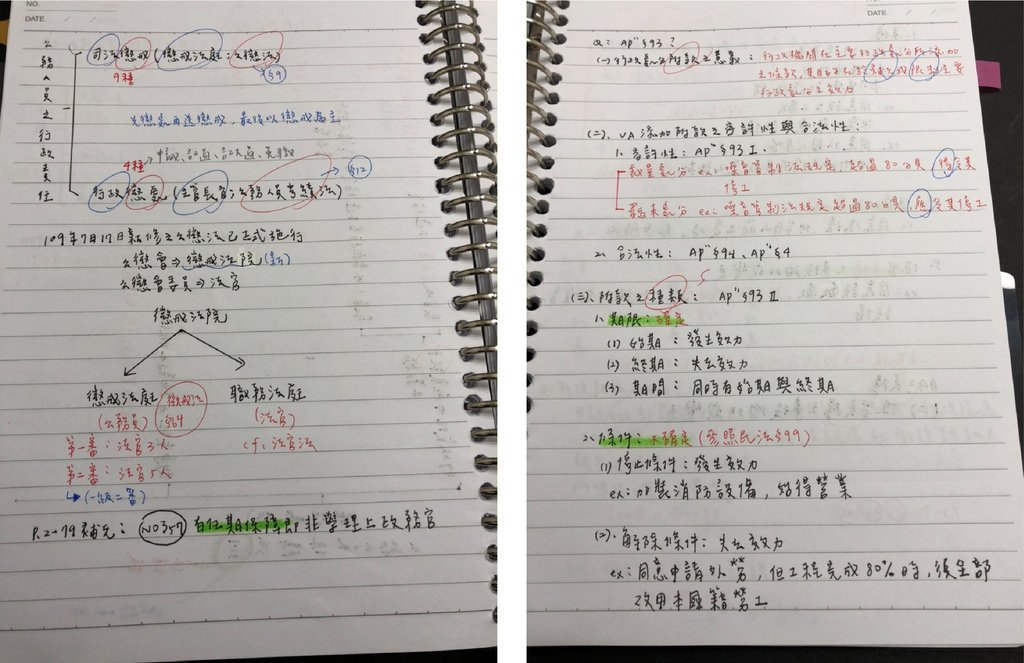 NO.
DATE.
公務人員之行政責任
司法懲戒(懲戒法庭:公懲法)
9種
§9
先懲處再送懲戒,最後以懲戒為主
4種→申誡、記過、記大過、免職
→§12
行政懲處(主官長官:公務人員考績法)
109年7月17日新修之公懲法已正式施行
公懲會⇒懲戒法院(新)
公懲會委員⇒法官
懲戒法院
懲戒法庭
(公務員)
§64
第一審:法官3人
第二審:法官5人
↳(一級二審)
職務法庭
(法官)
cf:法官法
P.2-79補充:NO357有任期保障即非學理上政務官
DATE.
Q:Ap"§93?
(一)行政處分附款之意義:行政機關在主要行政處分所添加
之條款,其目的在於補充或限制主要
行政處分之效力
(二).VA添加附款之容許性與合法性:
1.容許性:Ap"§93 I.
裁量處分 ex:噪音管制法規定,超過80分貝,得令其
停工
羈束處分 ex:噪音管制法規定超過80分貝,應令其停工
2.合法性:Ap"§94、Ap"§4
5
(三).附款之種類:Ap"§93 II
1.期限:確定
(1)始期:發生效力
(2)終期:失去效力
(3)期間:同時有始期與終期
2.條件:不確定(參照民法§99)
(1)停止條件:發生效力
ex:加裝消防設備,始得營業
(2).解除條件:失去效力
ex:同意申請外勞,但工程完成80%時,須全部
改用本國籍勞工